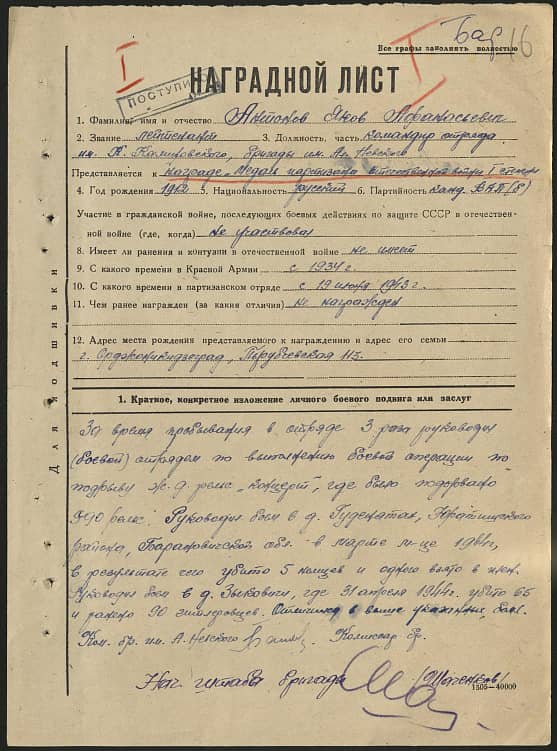 Бар 16
Все графы заполнять полностью
I
I
ПОСТУПИЛО
НАГРАДНОЙ ЛИСТ
1. Фамилия, имя и отчество Антонов Яков Афанасьевич
2. Звание лейтенант 3. Должность, часть командир отряда
им. К. Калиновского, бригады им. Ал. Невского
Представляется к награде Медали партизана отечественной войны I степени
4. Год рождения 1912 5. Национальность русский 6. Партийность канд. ВКП(б)
Участие в гражданской войне, последующих боевых действиях по защите СССР в отечествен-
ной войне (где, когда) не участвовал
8. Имеет ли ранения и контузии в отечественной войне не имеет
9. С какого времени в Красной Армии с 1934 г.
10. С какого времени в партизанском отряде с 19 1943 г.
11. Чем ранее награжден (за какие отличия) не награжден
12. Адрес места рождения представляемого к награждению и адрес его семьи
г. Орджоникидзеград, Трубчевская 113.
Для подшивки
1. Краткое, конкретное изложение личного боевого подвига или заслуг
За время пребывания в отряде 3 раза руководил
(боевой) отрядом по выполнению боевой операции по
подрыву ж.д. рельс „концерт", где было подорвано
990 рельс. Руководил боем в д. района, Барановичской обл. в марте м-це 1944 г,
в результате чего убито 5 немцев и одного взято в плен.
Руководил боем в д. где 31 апреля 1944 г. убито 65
и ранено 90 гитлеровцев. в выше указанных
Ком. бр. им. А. Невского Комиссар бр.
Нач. штаба бригады
1505—40000